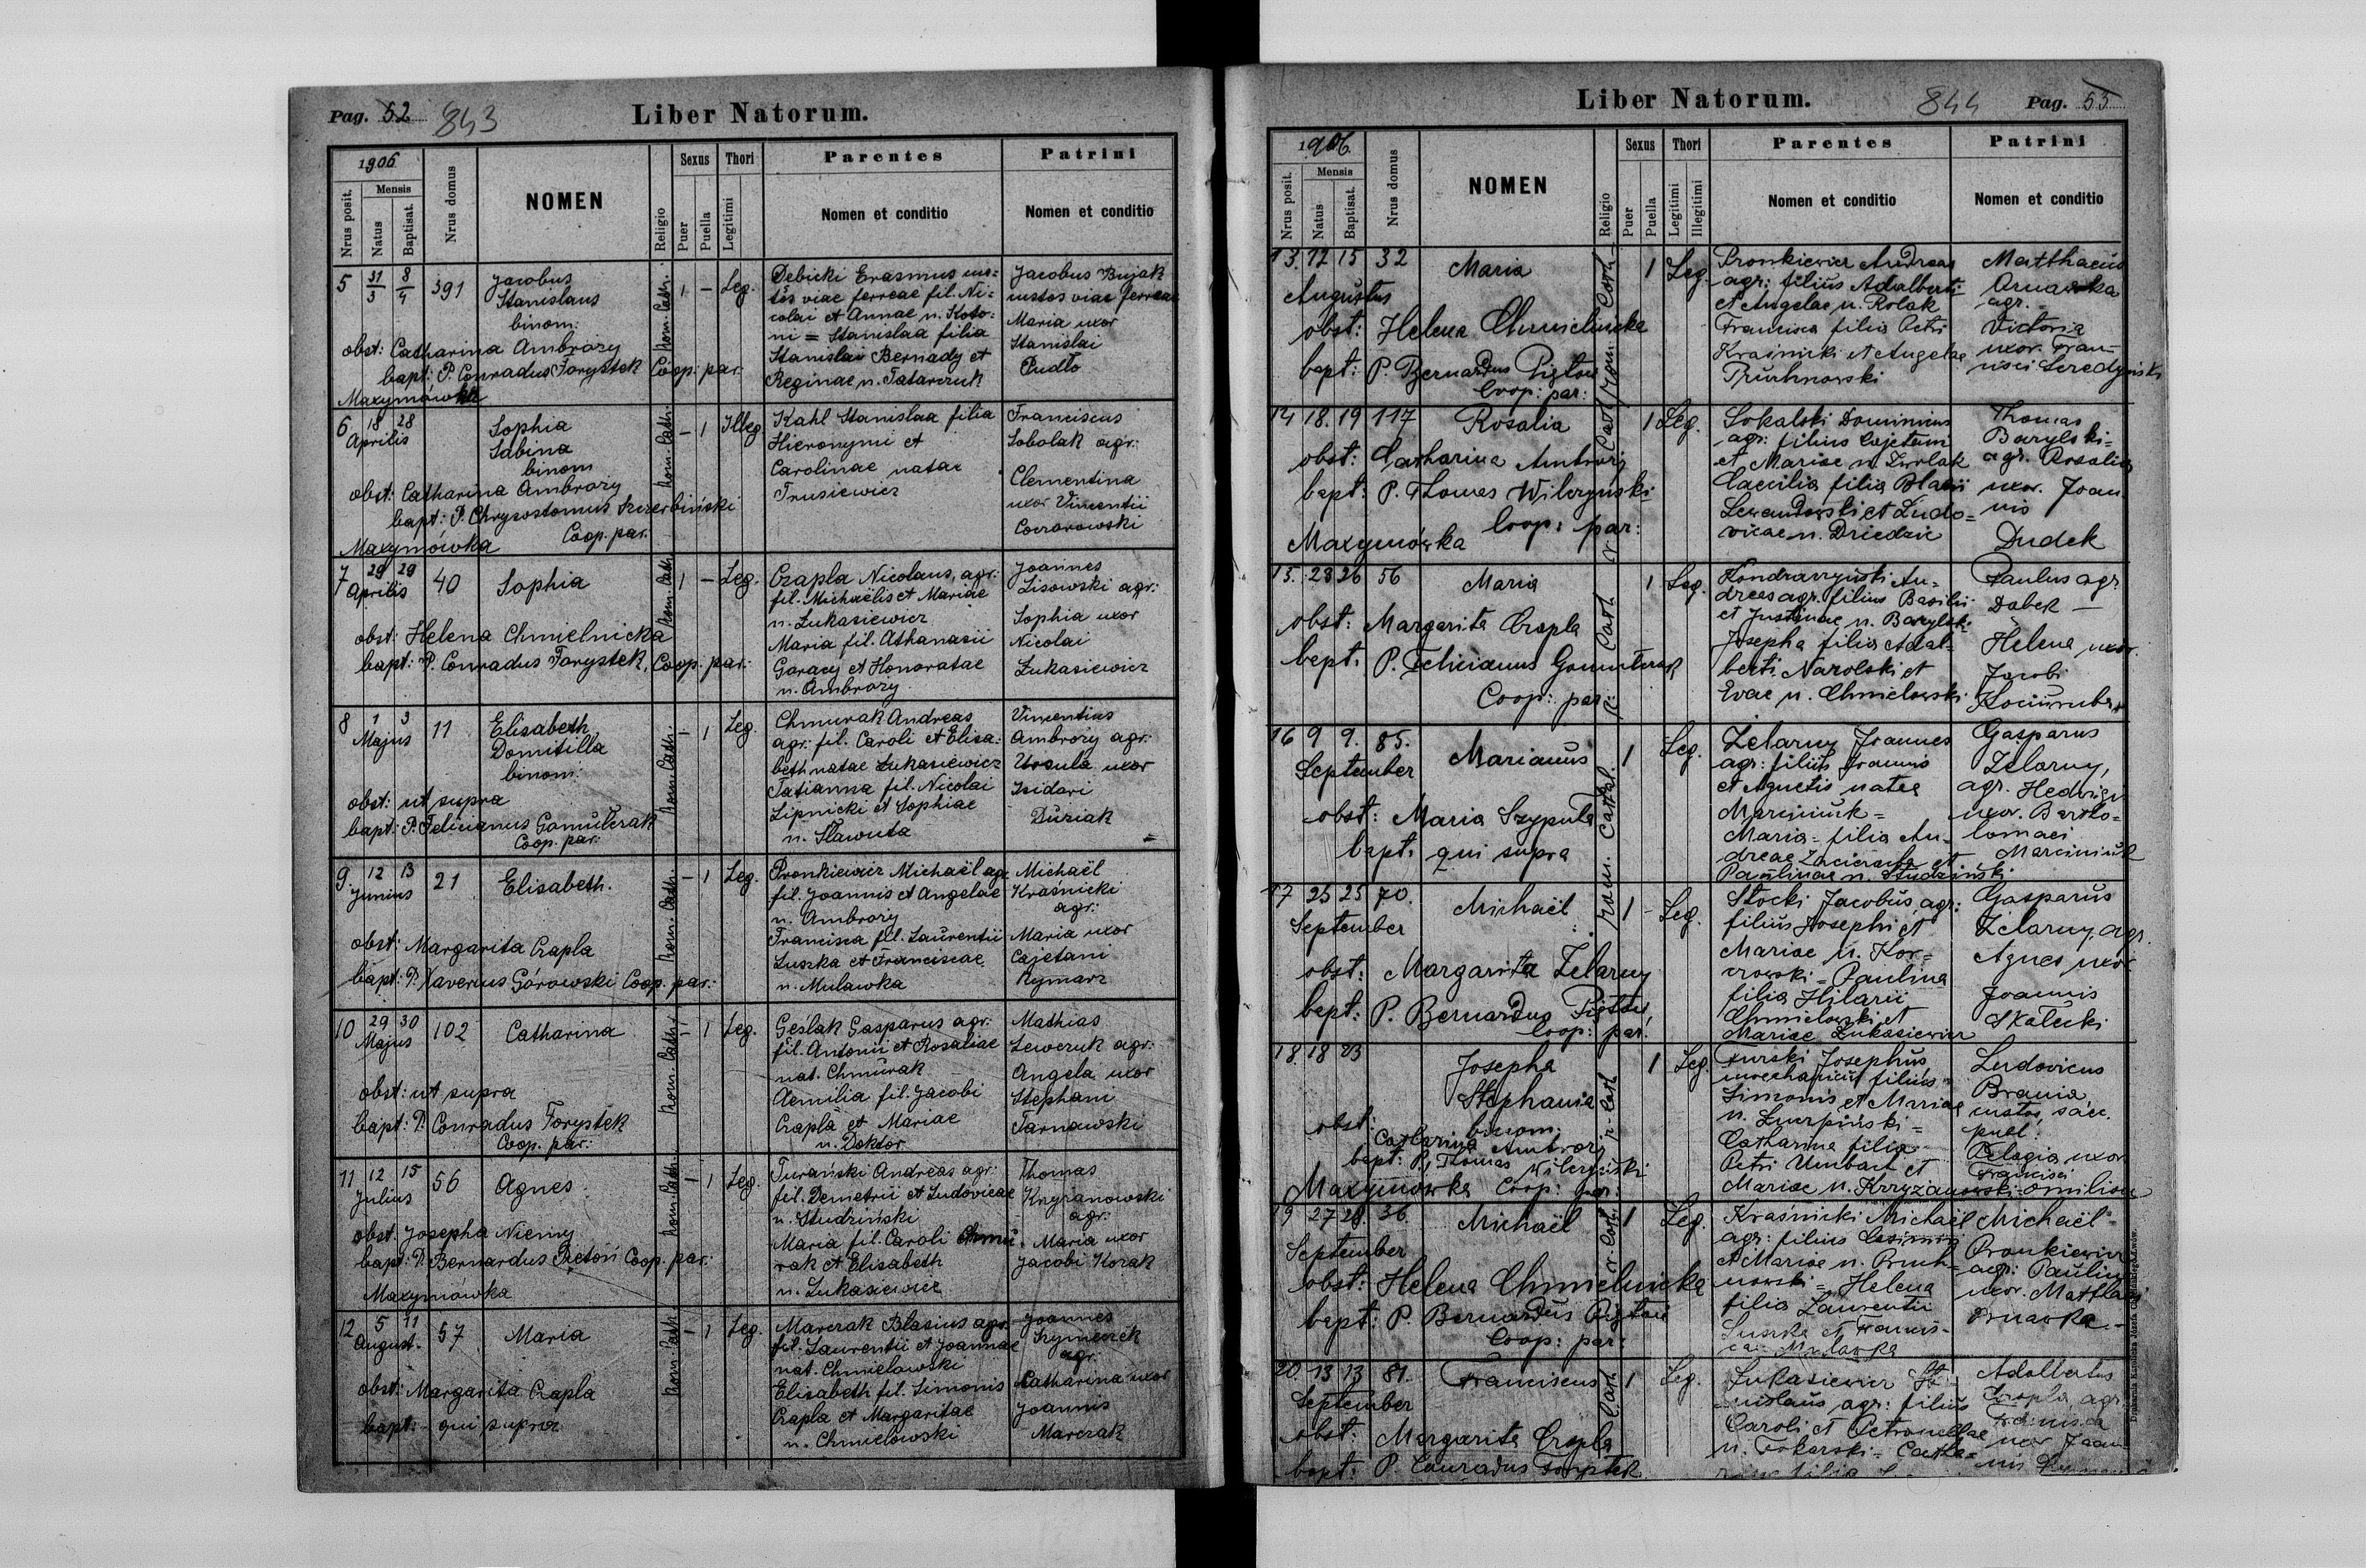 Pag. 52 843
Liber Natorum.
1906
Nrus posit.
Mensis
Natus
Baptisat.
Nrus domus
NOMEN
Religio
Sexus
Puer
Puella
Thori
Legitimi
Parentes
Nomen et conditio
Patrini
Nomen et conditio
5 31/3 8/4 391 Jacobus
Stanislaus
binom:
obst: Catharina Ambroży
bapt: P. Conradus Forystek Coop. par:
Maxymówka
Rom. Cath.
1 – Leg.
Debicki Erasmus cus=
tos viae ferreae fil. Ni=
colai et Annae n. Koto=
ni = Stanislaa filia
Stanislai Bernady et
Reginae n. Tatarczuk
Jacobus Bujak
custos viae ferreae
Maria uxor
Stanislai
Pudło
6 18 28
Aprilis
Sophia
Sabina
binom
obst: Catharina Ambroży
bapt: P. Chrysostomus Szczerbiński
Coop. par.
Maxymówka
Rom. Cath.
– 1 Illeg
Kahl Stanislaa filia
Hieronymi et
Carolinae natae
Trusiewicz
Franciscus
Sobolak agr:
Clementina
uxor Vincentii
7 29 29
Aprilis
40 Sophia
obst: Helena Chmielnicka
bapt: P. Conradus Forystek, Coop: par:
Rom. Cath.
1 – Leg.
Czapla Nicolaus, agr:
fil. Michaëlis et Mariae
n. Łukasiewicz
Maria fil. Athanasii
Garacy et Honoratae
n. Ambroży.
Joannes
Lisowski agr:
Sophia uxor
Nicolai
Łukasiewicz
8 1 3
Majus
11 Elisabeth,
Domitilla
binom:
obst: ut supra
bapt: P. Felicianus Gomulczak
Coop. par:
Rom. Cath.
– 1 Leg.
Chmurak Andreas
agr: fil. Caroli et Elisa=
beth natae Łukasiewicz
Tatianna fil. Nicolai
Lipnicki et Sophiae
n. Sławuta
Vincentius
Ambroży agr:
Ursula uxor
Isidori
Duziak
9 12 13
Junius
21 Elisabeth.
obst: Margarita Czapla
bapt: P. Xaverius Górowski Coop. par:
Rom. Cath.
– 1 Leg.
Pronkiewicz Michaël agr
fil. Joannis et Angelae
n. Ambroży
Francisca fil. Laurentii
Suszka et Franciscae
n. Mulawka
Michaël
Kraśnicki
agr:
Maria uxor
Cajetani
Rymarz
10 29 30
Majus
102 Catharina
obst: ut supra
bapt: P. Conradus Forystek
Coop. par:
Rom. Cath.
– 1 Leg.
Geślak Gasparus agr:
fil. Antonii et Rosaliae
nat. Chmurak
Aemilia fil. Jacobi
Czapla et Mariae
n. Doktor
Mathias
Lewczuk agr:
Angela uxor
Stephani
Tarnawski
11 12 15
Julius
56 Agnes
obst. Josepha Niemy
bapt: P. Bernardus Pietoń Coop. par:
Maxymówka
Rom. Cath.
– 1 Leg.
Turański Andreas agr:
fil. Demetrii et Ludovicae
n. Studziński
Maria fil. Caroli Chmu=
rak et Elisabeth
n. Łukasiewicz
Thomas
agr:
Maria uxor
Jacobi Kozak
12 5 11
August.
57 Maria
obst: Margarita Czapla
bapt: qui supra
Rom. Cath.
– 1 Leg.
Marczak Blasius agr.
fil. Laurentii et Joannae
nat. Chmielowski
Elisabeth fil. Simonis
Czapla et Margaritae
n. Chmielowski
Joannes
Szymeczek
agr:
Catharina uxor
Joannis
Marczak
Liber Natorum.
844 Pag. 53
1906.
Nrus posit.
Mensis
Natus
Baptisat.
Nrus domus
NOMEN
Religio
Sexus
Puer
Puella
Thori
Legitimi
Illegitimi
Parentes
Nomen et conditio
Patrini
Nomen et conditio
13. 12 15 32 Maria
Augustus
obst: Helena Chmielnicka
bapt: P. Bernardus
Coop: par:
Rom. Cath
1 Leg.
Pronkiewicz Andreas
agr: filius Adalberti
et Angelae n. Rolak
Francisca filia Petri
Kraśnicki et Angelae
Pruchnowski
Matthaeus
agr.
Victoria
uxor. Fran=
cisci Seredyński
14 18. 19 117 Rosalia
obst: Catharina Ambroży
bapt: P. Thomas Wilczyński
Coop: par:
Maxymówka
1 Leg.
Sokalski Dominicus
agr: filius Cajetani
et Mariae n.
Caecilia filia Blasii
Lewandowski et Ludo=
vicae n. Dziedzic
Thomas
Barylski=
agr. Rosalia
uxor. Joan
nis
Dudek
15. 23 26 56 Maria
obst: Margarita Czapla
bapt. P. Felicianus Gomulczak
Coop: par:
1 Leg.
An=
dreas agr. filius Basilii
et Justinae n. Barylski
Josepha filia Adal=
berti Narolski et
Evae n. Chmielowski
Paulus agr
Dabek —
Helena uxor.
Jacobi
16 9 9. 85. Marianus
September
obst: Maria Szypuła
bapt. qui supra
1 Leg.
Żelazny Joannes
agr: filius Joannis
et Agnetis natae
Marciniuk=
Maria= filia An=
dreae et
Paulinae n. Studziński
Gasparus
Żelazny,
agr. Hedvigis
uxor. Barto=
lomaei
Marciniuk
17 25 25 70. Michaël
September
obst: Margarita Żelazny
bapt: P. Bernardus
Coop: par:
Rom. Cathol.
1 - Leg.
Stocki Jacobus, agr:
filius Josephi et
Mariae n. Kor=
= Paulina
filia Hilarii
Chmielowski et
Mariae Łukasiewicz
Gasparus
Żelazny, agr.
Agnes uxor
Joannis
Skałecki
18. 18 23 Josepha
Stephania
binom:
obst: Catharina Ambroży
bapt: P. Thomas Wilczyński
Maxymówka Coop: par:
r. Cath
1 Leg.
Turski Josephus
mechanicus filius
Simonis et Mariae
n.
Catharina filia
Petri Umbach et
Mariae n. Krzyżanowski
Ludovicus
Brania
Pelagia uxor
Francisci
19 27 29. 36. Michaël
September
obst: Helena Chmielnicka
bapt: P. Bernardus
Coop: par:
r. Cath.
1 Leg.
Kraśnicki Michaël
agr: filius Casimiri
et Mariae n. Pruch=
nowski= Helena
filia Laurentii
Suszka et Francis=
cae Mulawka
Michaël
Pronkiewicz
agr: Paulina
uxor. Matthaei
20. 13 13 81. Franciscus
September
obst: Margarita Czapla
bapt: P. Conradus Forystek
Cath
1 Leg.
Łukasiewicz Sta=
nislaus agr: filius
Caroli et Petronellae
n. Tokarski= Catha=
rina filia
Adalbertus
Czapla agr
Francisca
uxor Joan
nis